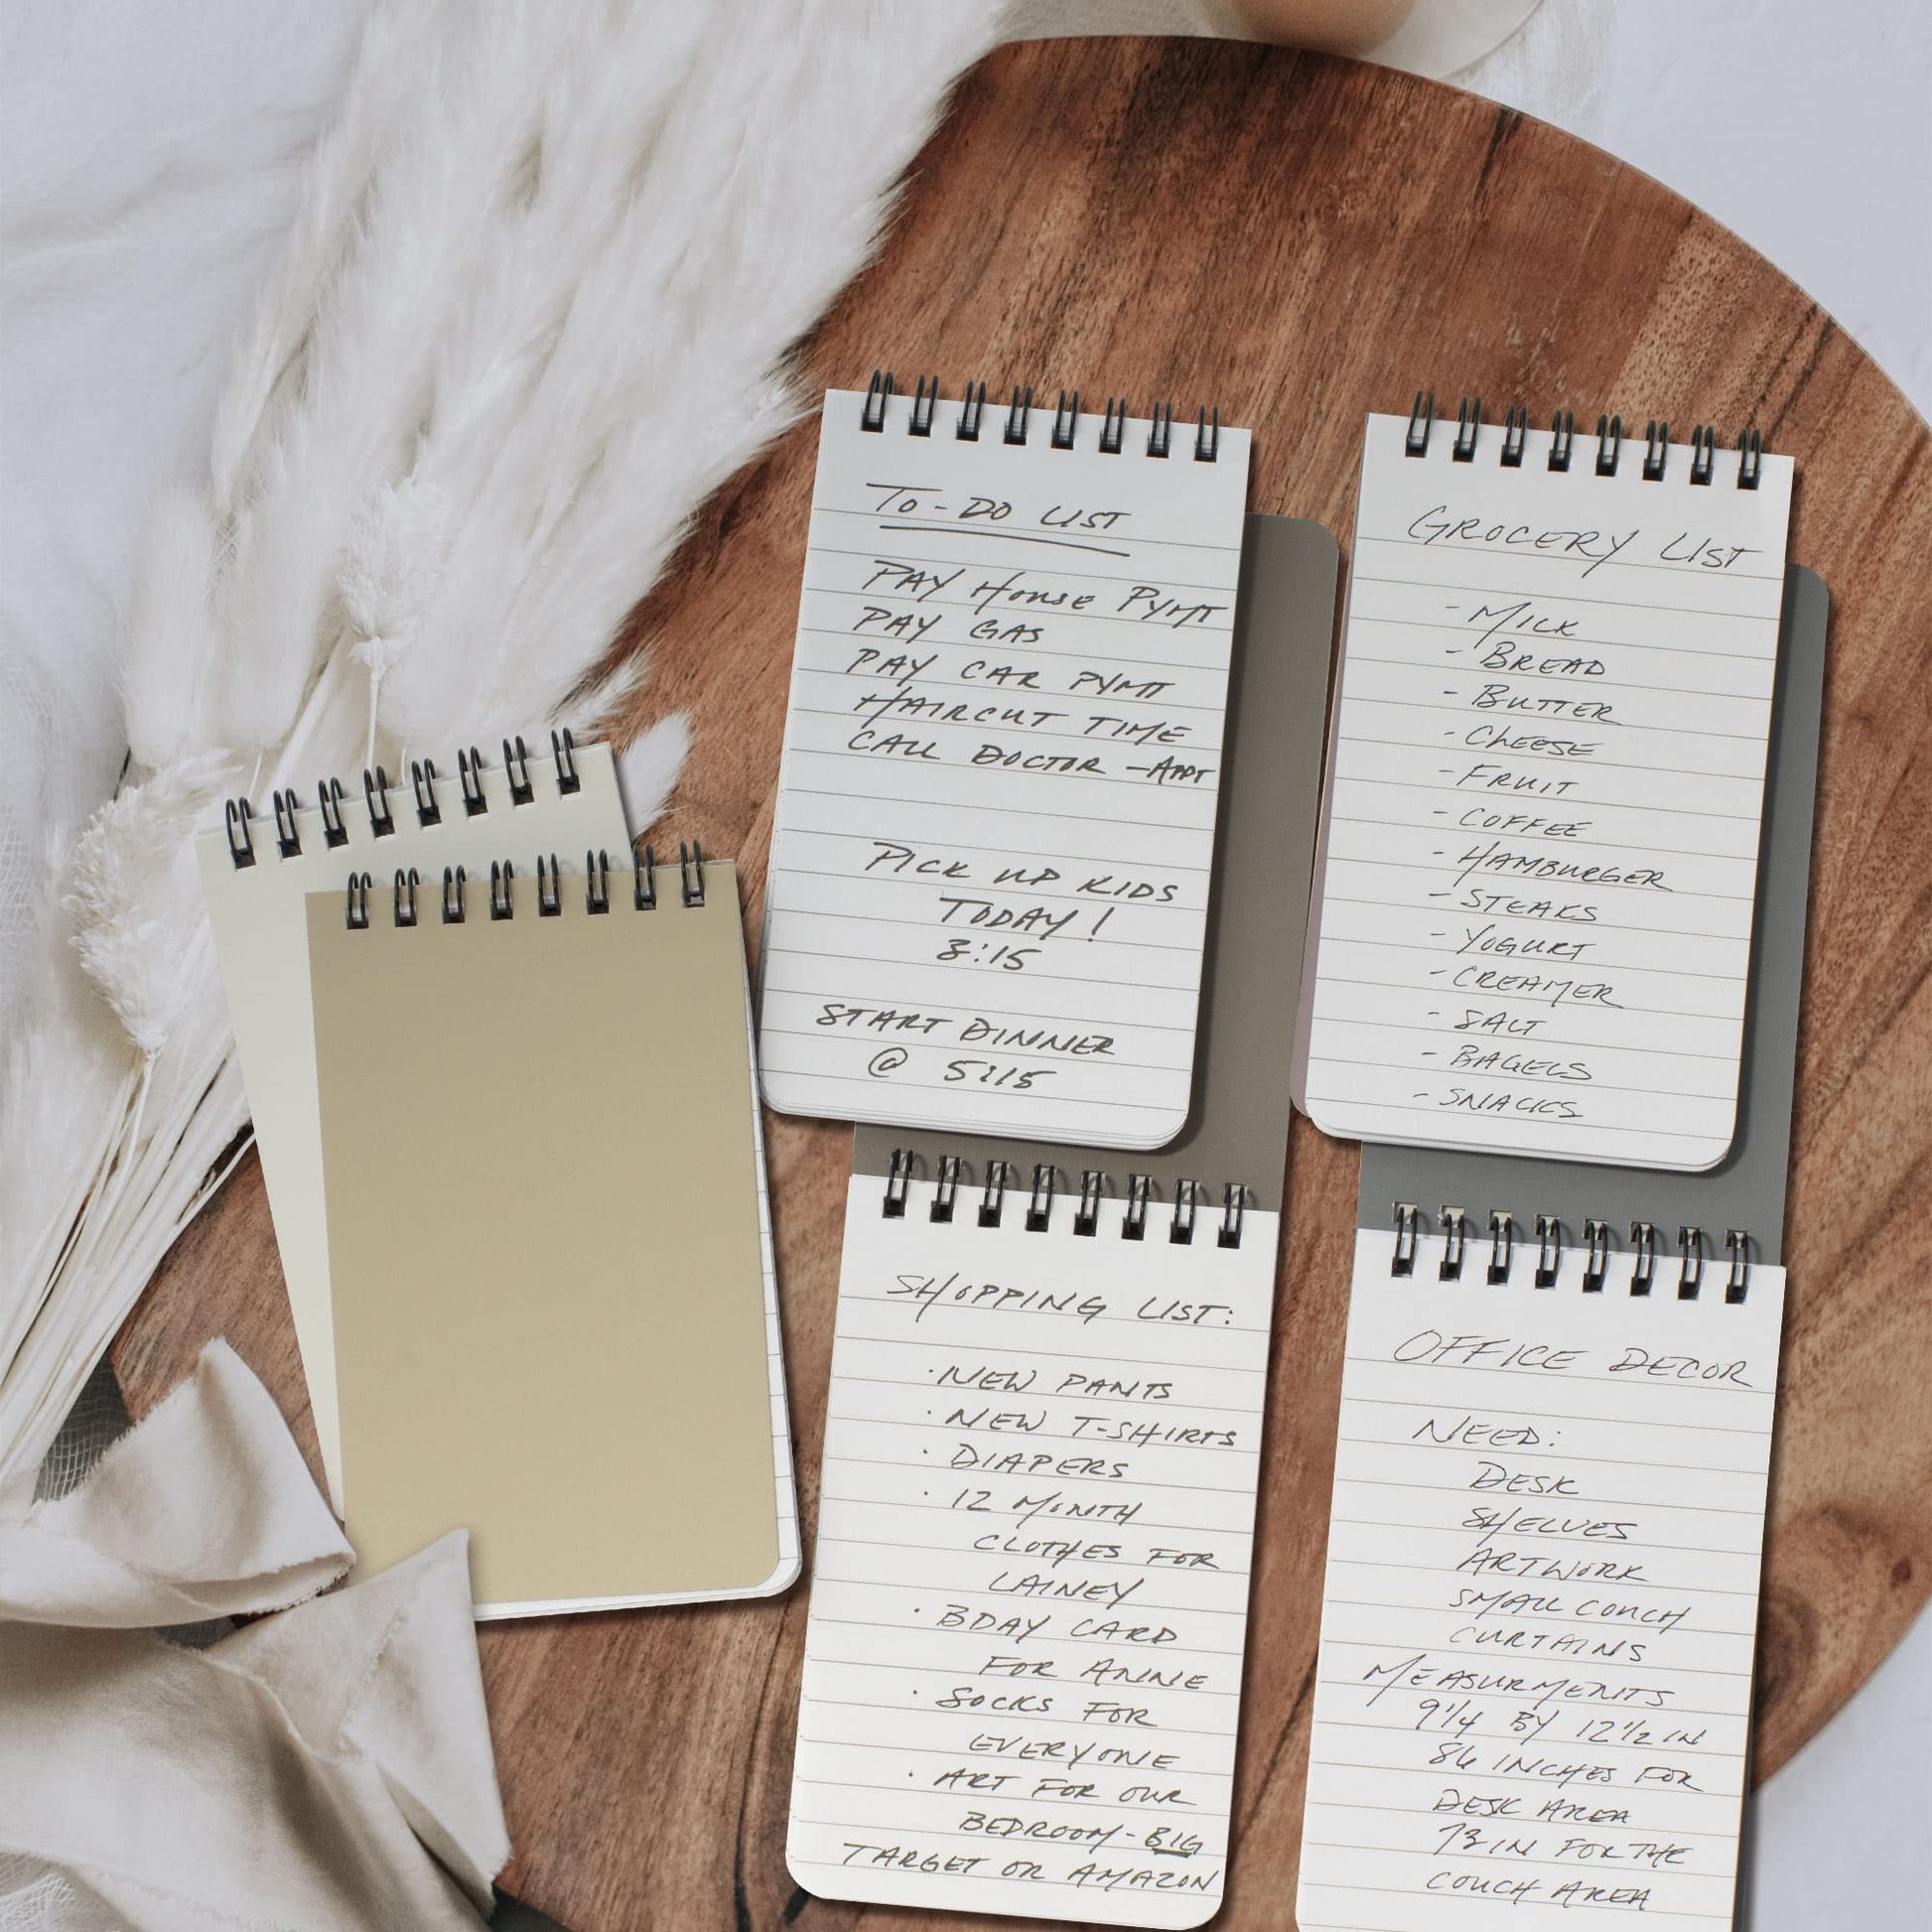 TO-DO LIST
PAY House PYMT
PAY GAS
PAY CAR PYMT
HAIRCUT TIME
CALL DOCTOR -APPT
PICK UP KIDS
TODAY!
3:15
START DINNER
@ 5:15
GROCERY LIST
- MILK
- BREAD
- BUTTER
- CHEESE
- FRUIT
- COFFEE
- HAMBURGER
- STEAKS
- YOGURT
- CREAMER
- SALT
- BAGELS
- SNACKS
SHOPPING LIST:
· NEW PANTS
· NEW T-SHIRTS
· DIAPERS
· 12 MONTH
CLOTHES FOR
LAINEY
· BDAY CARD
FOR ANNIE
· SOCKS FOR
EVERYONE
· ART FOR OUR
BEDROOM - BIG
TARGET OR AMAZON
OFFICE DECOR
NEED:
DESK
SHELVES
ARTWORK
SMALL COUCH
CURTAINS
MEASURMENTS
9 1/4 BY 12 1/2 IN
86 INCHES FOR
DESK AREA
73 IN FOR THE
COUCH AREA